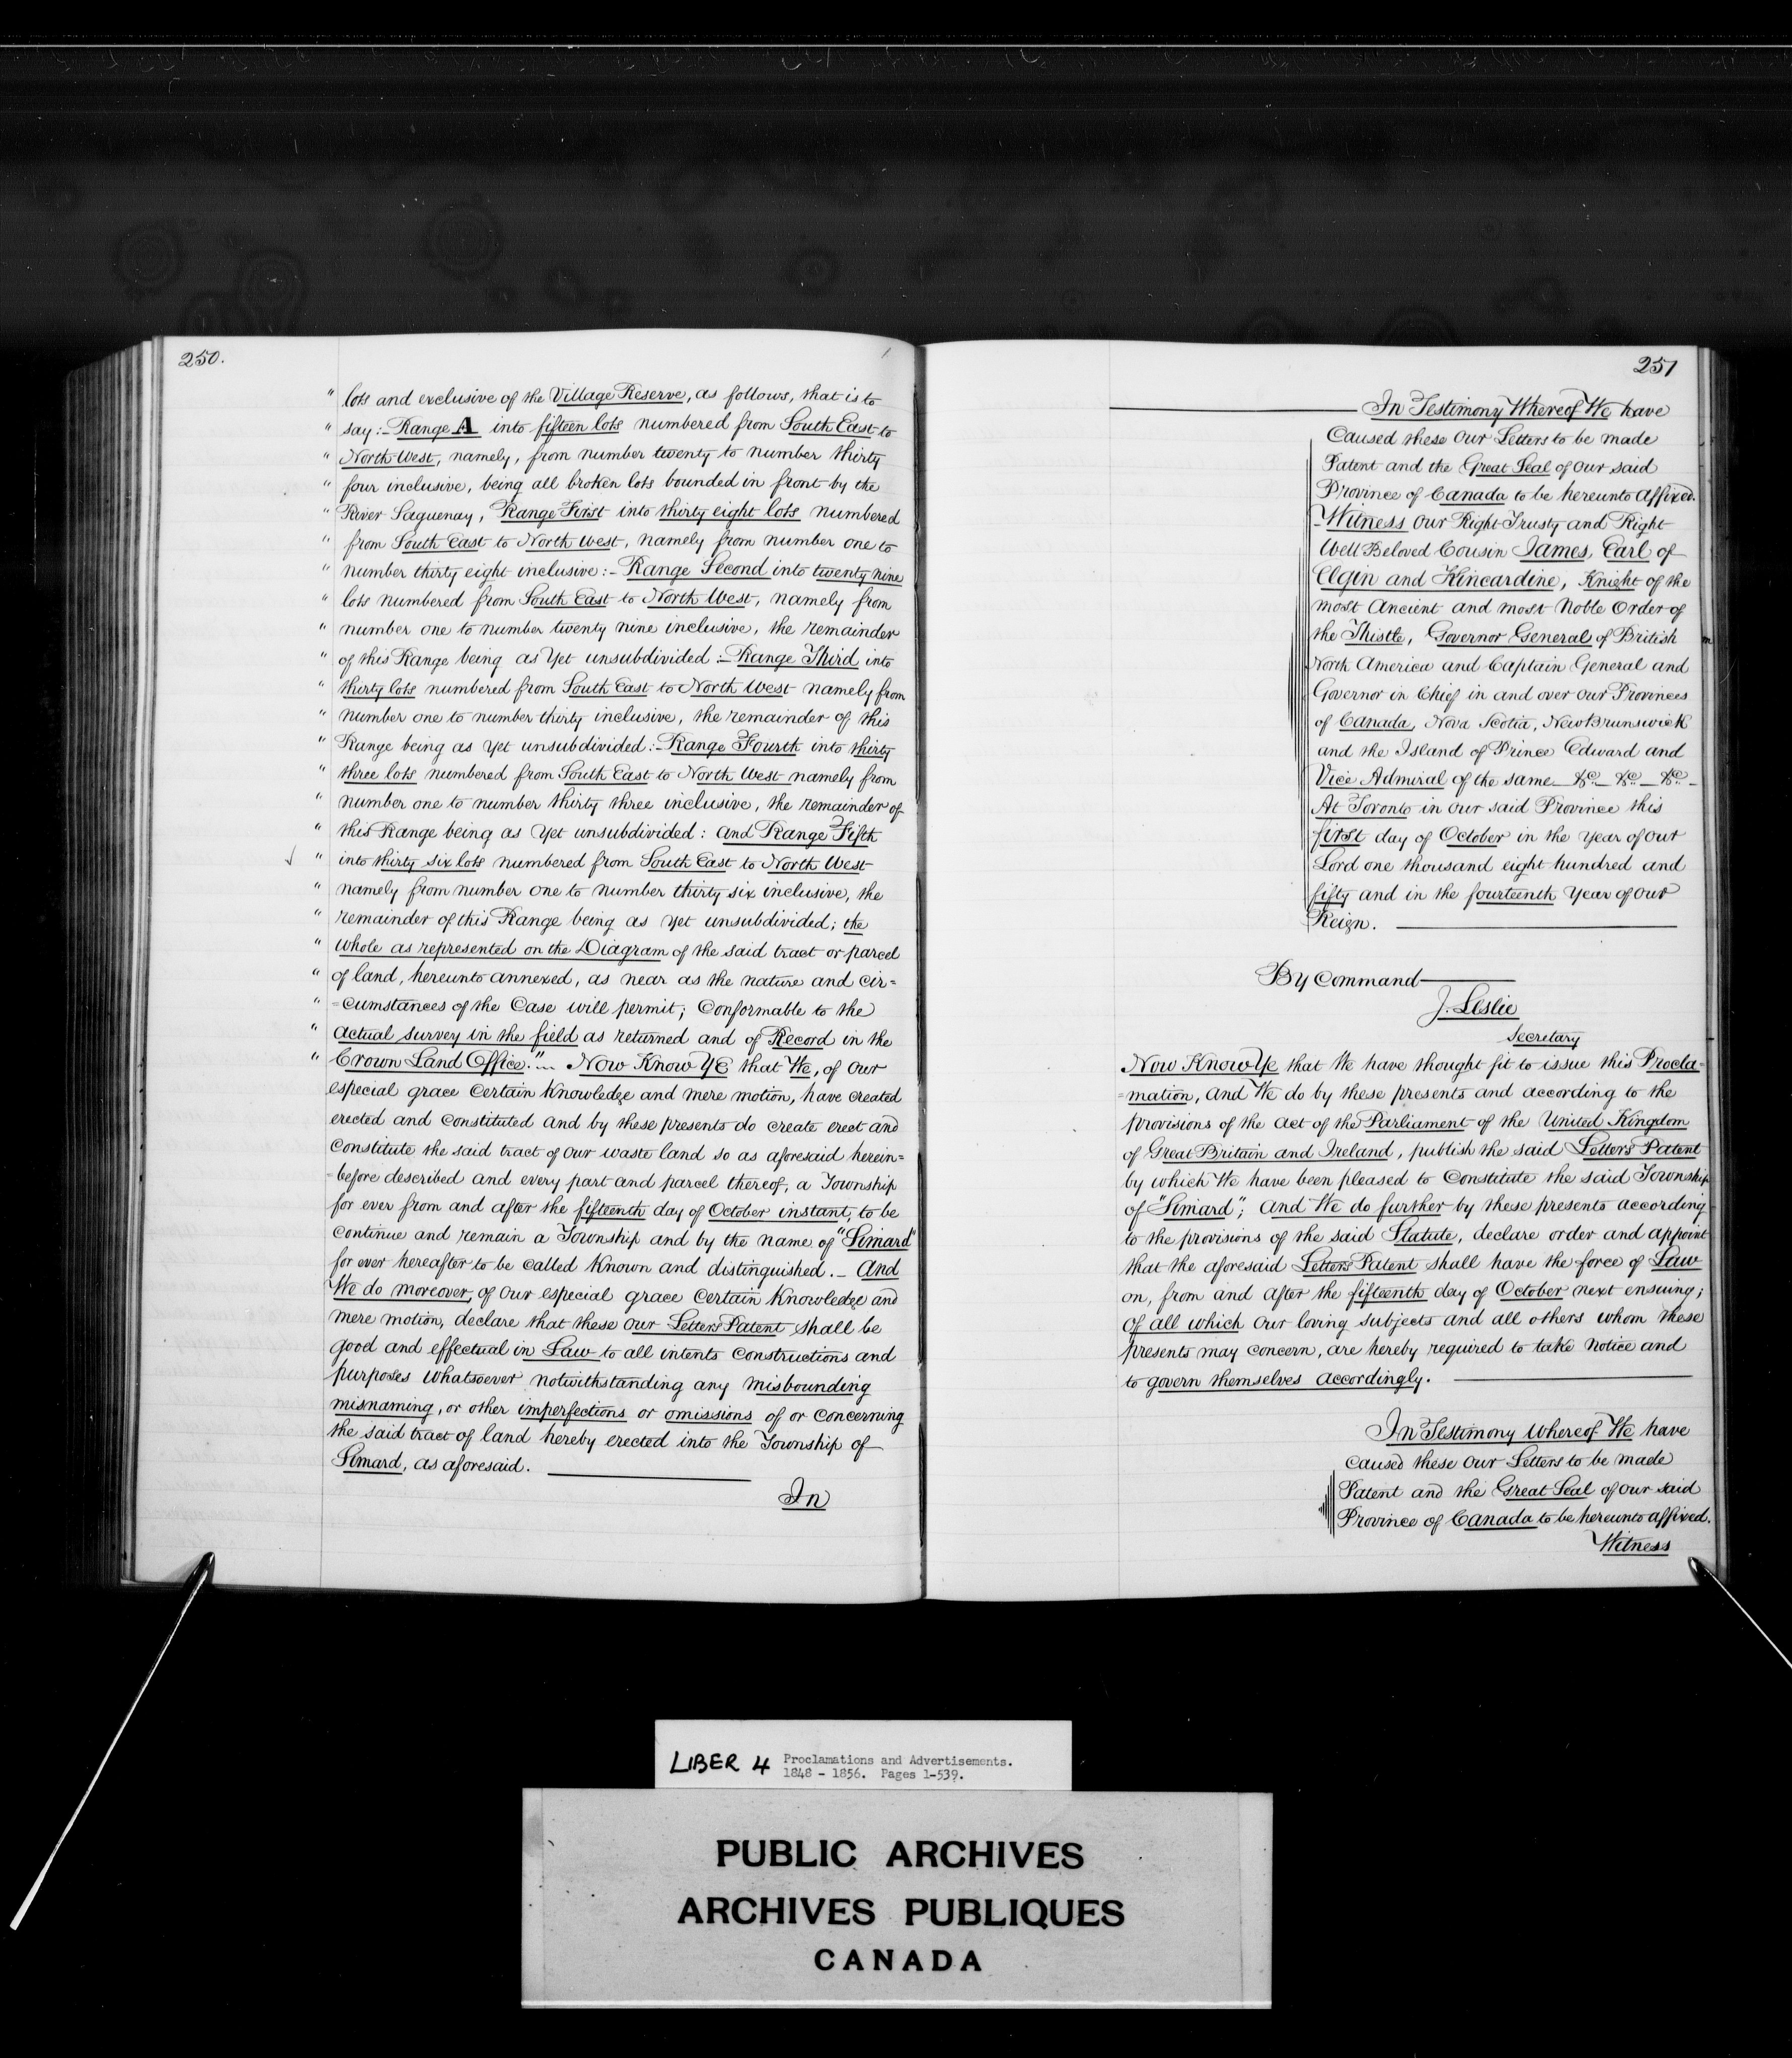 250.
" lots and exclusive of the Village Reserve, as follows, that is to
" say:- Range A into fifteen lots numbered from South East to
" North West, namely, from number twenty to number thirty
" four inclusive, being all broken lots bounded in front by the
" River Saguenay, Range First into thirty eight lots numbered
" from South East to North West, namely from number one to
" number thirty eight inclusive:- Range Second into twenty nine
" lots numbered from South East to North West, namely from
" number one to number twenty nine inclusive, the remainder
" of this Range being as yet unsubdivided:- Range Third into
" thirty lots numbered from South East to North West namely from
" number one to number thirty inclusive, the remainder of this
" Range being as yet unsubdivided:- Range Fourth into thirty
" three lots numbered from South East to North West namely from
" number one to number thirty three inclusive, the remainder of
" this Range being as yet unsubdivided: and Range Fifth
" into thirty six lots numbered from South East to North West
" namely from number one to number thirty six inclusive, the
" remainder of this Range being as yet unsubdivided; the
" whole as represented on the Diagram of the said tract or parcel
" of land, hereunto annexed, as near as the nature and cir=
" =cumstances of the Case will permit; Conformable to the
" actual survey in the field as returned and of Record in the
" Crown Land Office."... Now Know Ye that We, of our
especial grace certain Knowledge and mere motion, have created
erected and constituted and by these presents do create erect and
Constitute the said tract of our waste land so as aforesaid herein=
=before described and every part and parcel thereof, a Township
for ever from and after the fifteenth day of October instant, to be
continue and remain a Township and by the name of "Simard"
for ever hereafter to be called Known and distinguished.- And
We do moreover, of our especial grace certain Knowledge and
mere motion, declare that these our Letters Patent shall be
good and effectual in Law to all intents constructions and
purposes whatsoever notwithstanding any misbounding
misnaming, or other imperfections or omissions of or concerning
the said tract of land hereby erected into the Township of
Simard, as aforesaid.
In
251
In Testimony Whereof We have
Caused these Our Letters to be made
Patent and the Great Seal of our said
Province of Canada to be hereunto affixed.
Witness our Right Trusty and Right
Well Beloved Cousin James, Earl of
Elgin and Kincardine, Knight of the
most Ancient and most Noble Order of
the Thistle, Governor General of British
North America and Captain General and
Governor in Chief in and over our Provinces
of Canada, Nova Scotia, New Brunswick
and the Island of Prince Edward and
Vice Admiral of the same &c.- &c.- &c.-
At Toronto in our said Province this
first day of October in the year of our
Lord one thousand eight hundred and
fifty and in the fourteenth year of our
Reign.
By Command
J. Leslie
Secretary
Now Know Ye that We have thought fit to issue this Procla=
=mation, and We do by these presents and according to the
provisions of the act of the Parliament of the United Kingdom
of Great Britain and Ireland, publish the said Letters Patent
by which We have been pleased to Constitute the said Township
of "Simard"; and We do further by these presents according
to the provisions of the said Statute, declare order and appoint
that the aforesaid Letters Patent shall have the force of Law
on, from and after the fifteenth day of October next ensuing;
of all which our loving subjects and all others whom these
presents may concern, are hereby required to take notice and
to govern themselves accordingly.
In Testimony Whereof We have
caused these our Letters to be made
Patent and the Great Seal of our said
Province of Canada to be hereunto affixed.
Witness
LIBER 4 Proclamations and Advertisements.
1848 - 1856. Pages 1-539.
PUBLIC ARCHIVES
ARCHIVES PUBLIQUES
CANADA